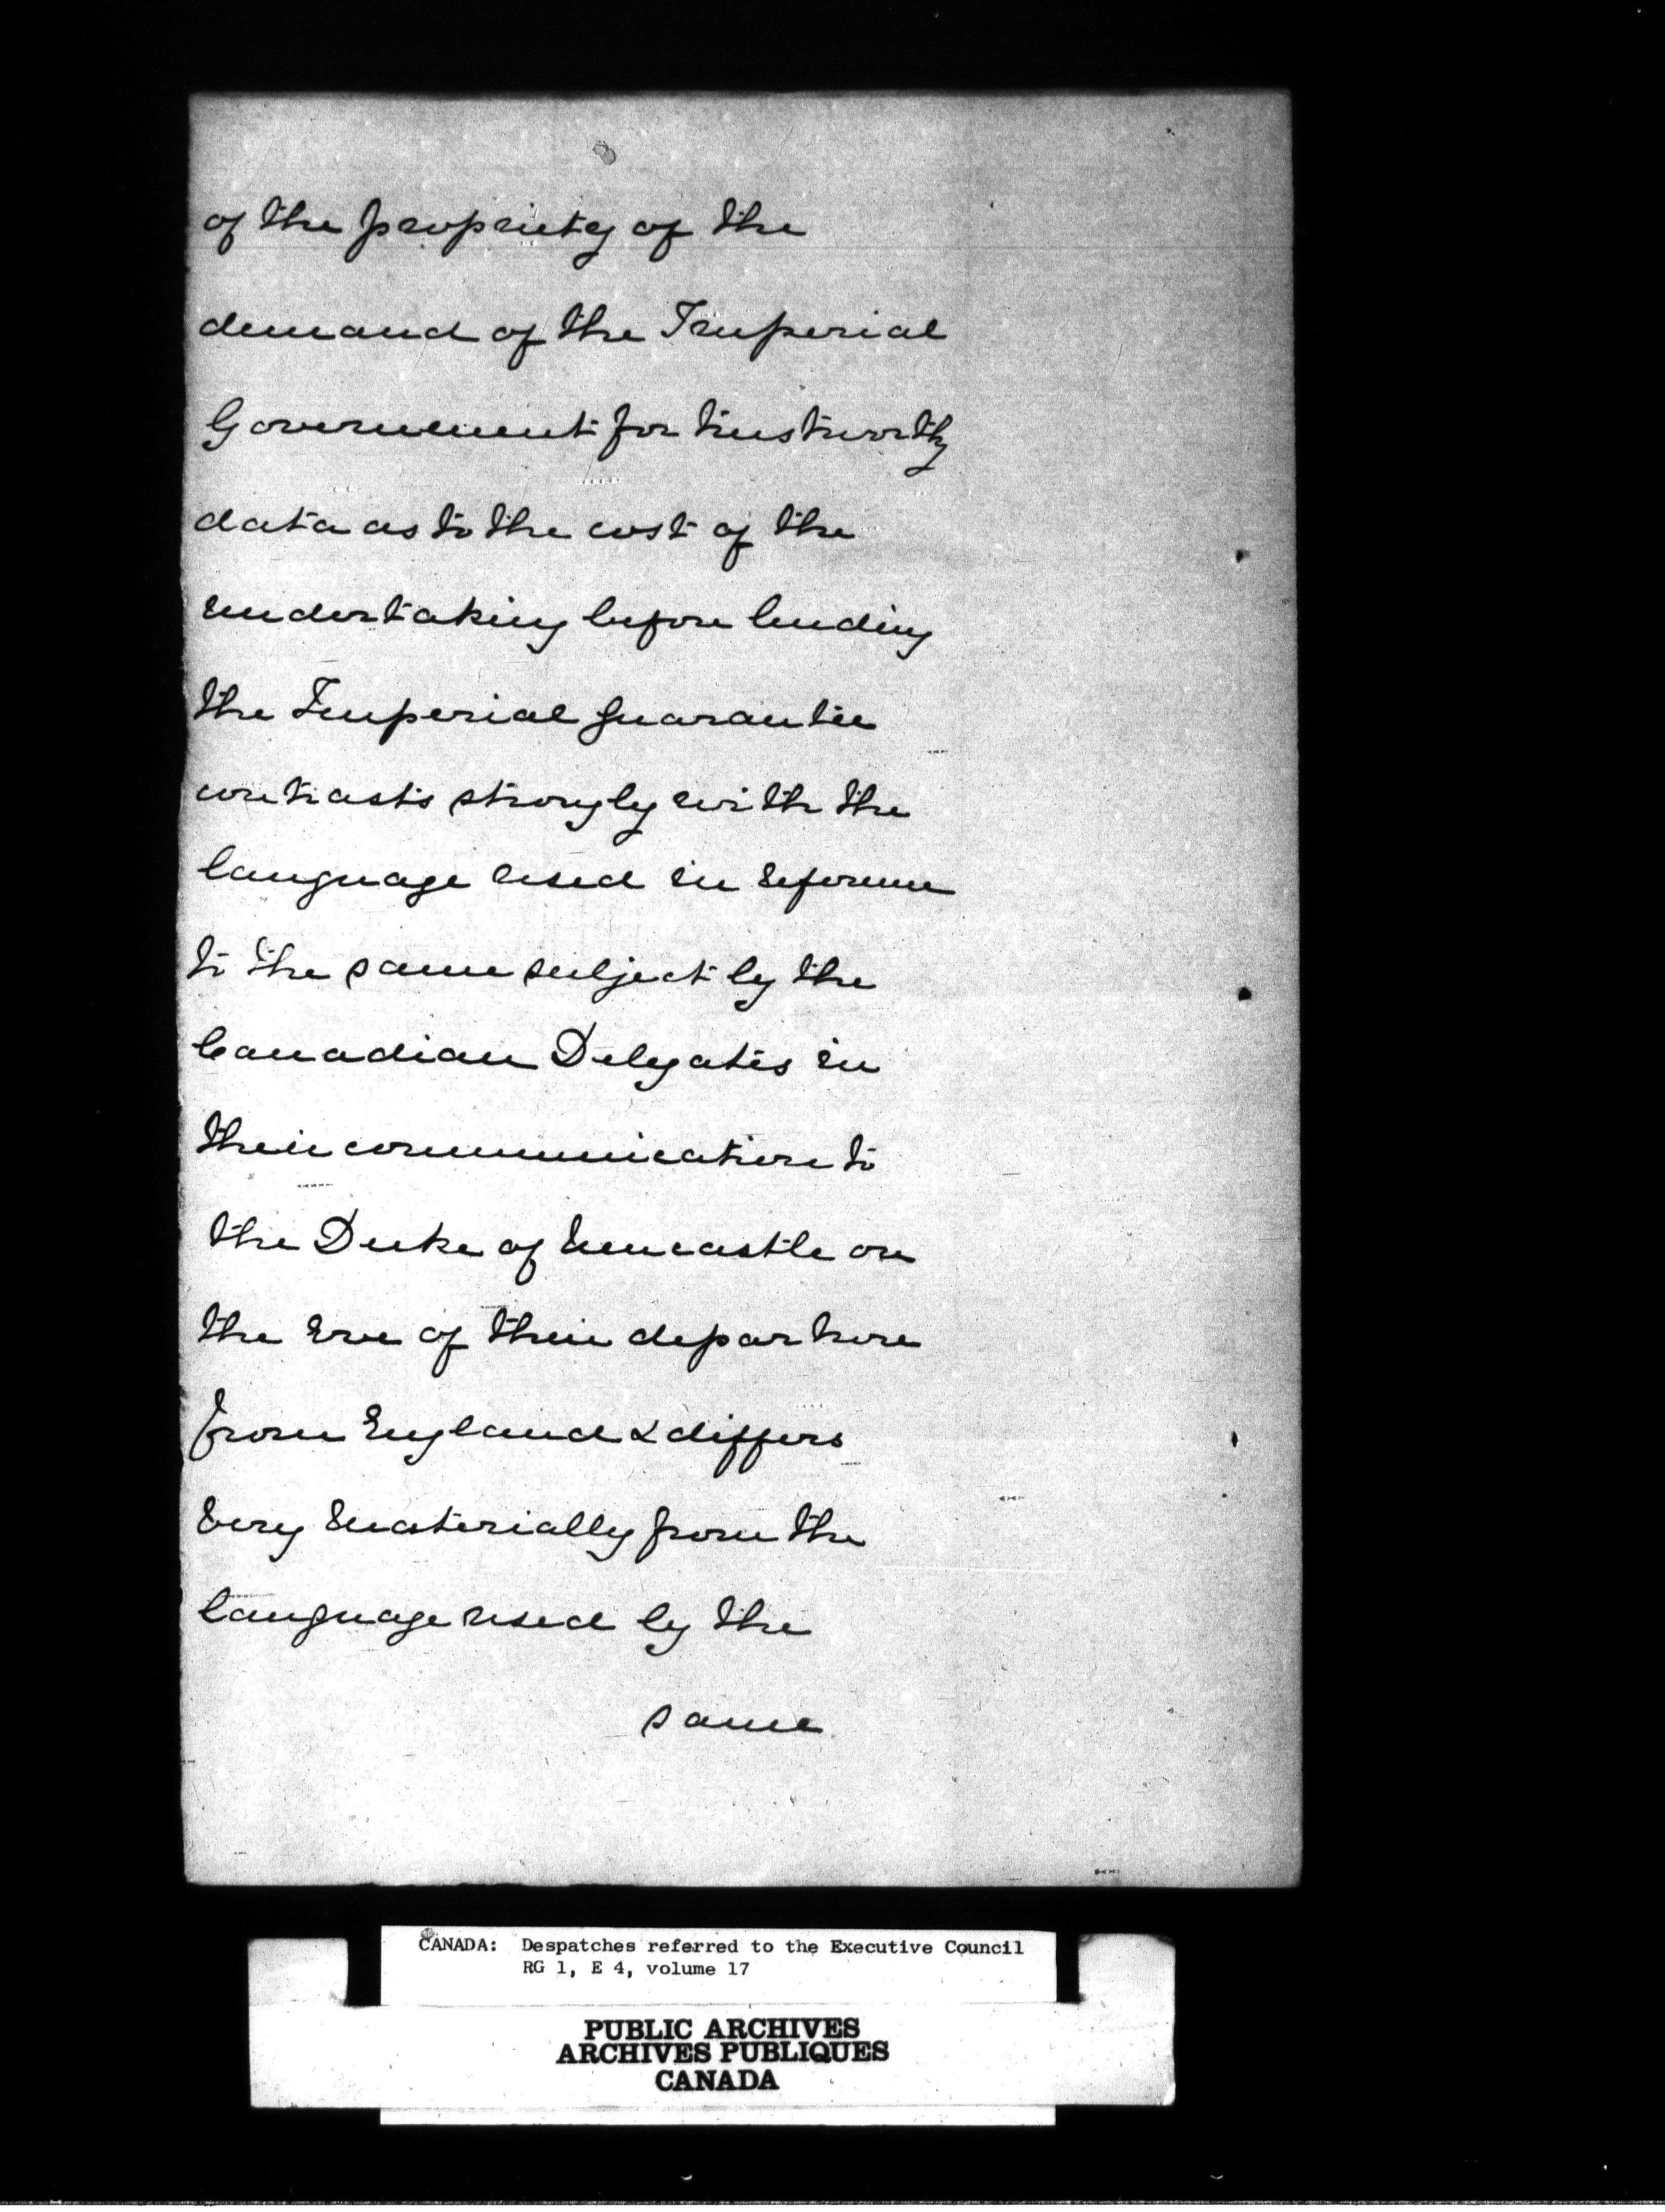 of the propriety of the
demand of the Imperial
Government for trustworthy
data as to the cost of the
undertaking before lending
the Imperial guarantee
contrasts strongly with the
language used in reference
to the same subject by the
Canadian Delegates in
their communication to
the Duke of Newcastle on
the eve of their departure
from England & differs
very materially from the
language used by the
same
CANADA: Despatches referred to the Executive Council
RG 1, E 4, volume 17
PUBLIC ARCHIVES
ARCHIVES PUBLIQUES
CANADA